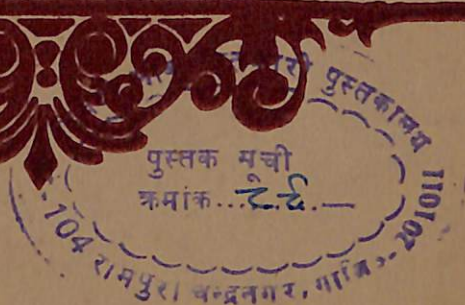 पुस्तकालय
पुस्तक सूची
क्रमांक...
-104 रामपुरी चन्द्रनगर, गाजि०- 201011